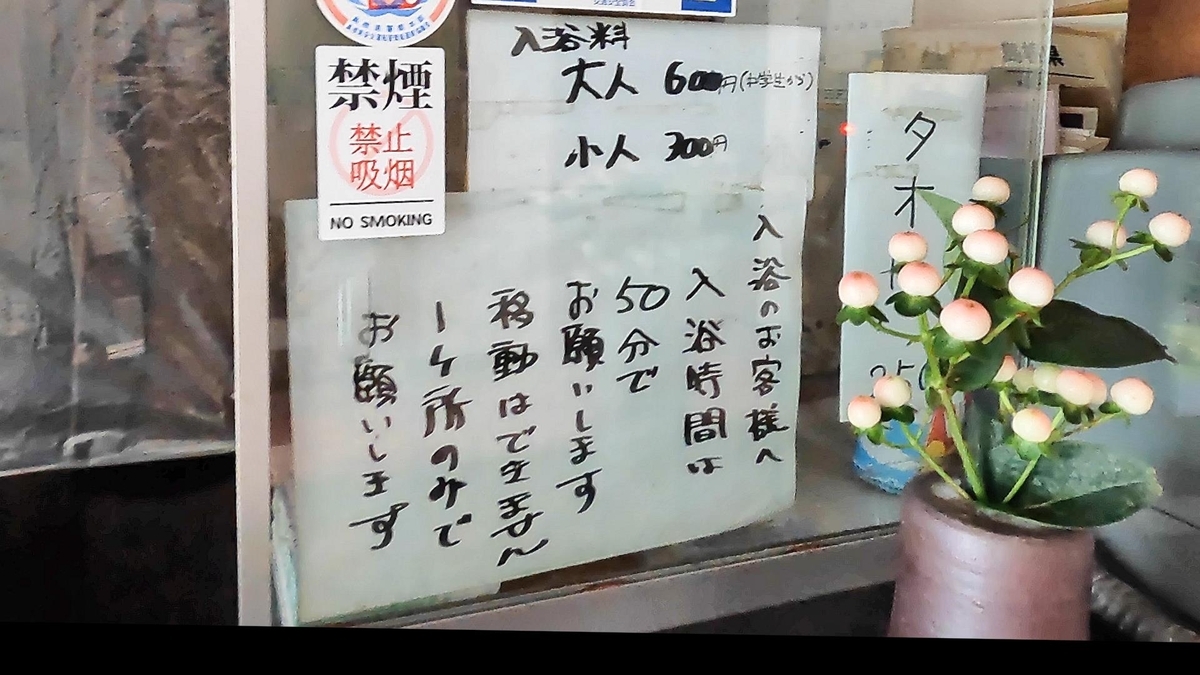 禁煙
禁止
吸烟
NO SMOKING
入浴料
大人 600円(中学生から)
小人 300円
入浴のお客様へ
入浴時間は
50分で
お願いします
移動はできません
1ヶ所のみで
お願いします
タオ